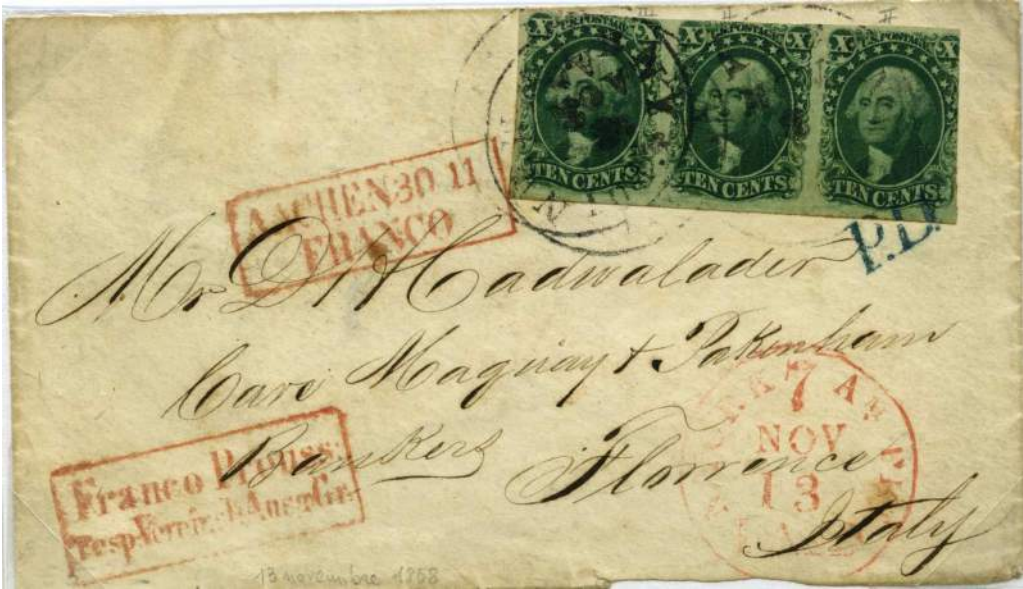 III II II
X U.S. POSTAGE X X U.S. POSTAGE X X U.S. POSTAGE X
TEN CENTS TEN CENTS TEN CENTS
P.D.
AACHEN 30 11
FRANCO
Mr D H Cadwalader
Care Maquay & Pakenham
Bankers Florence
Italy
7
NOV
13
Franco Preuss:
resp. Vereinsl. Ausg. Gr.
13 novembre 1858